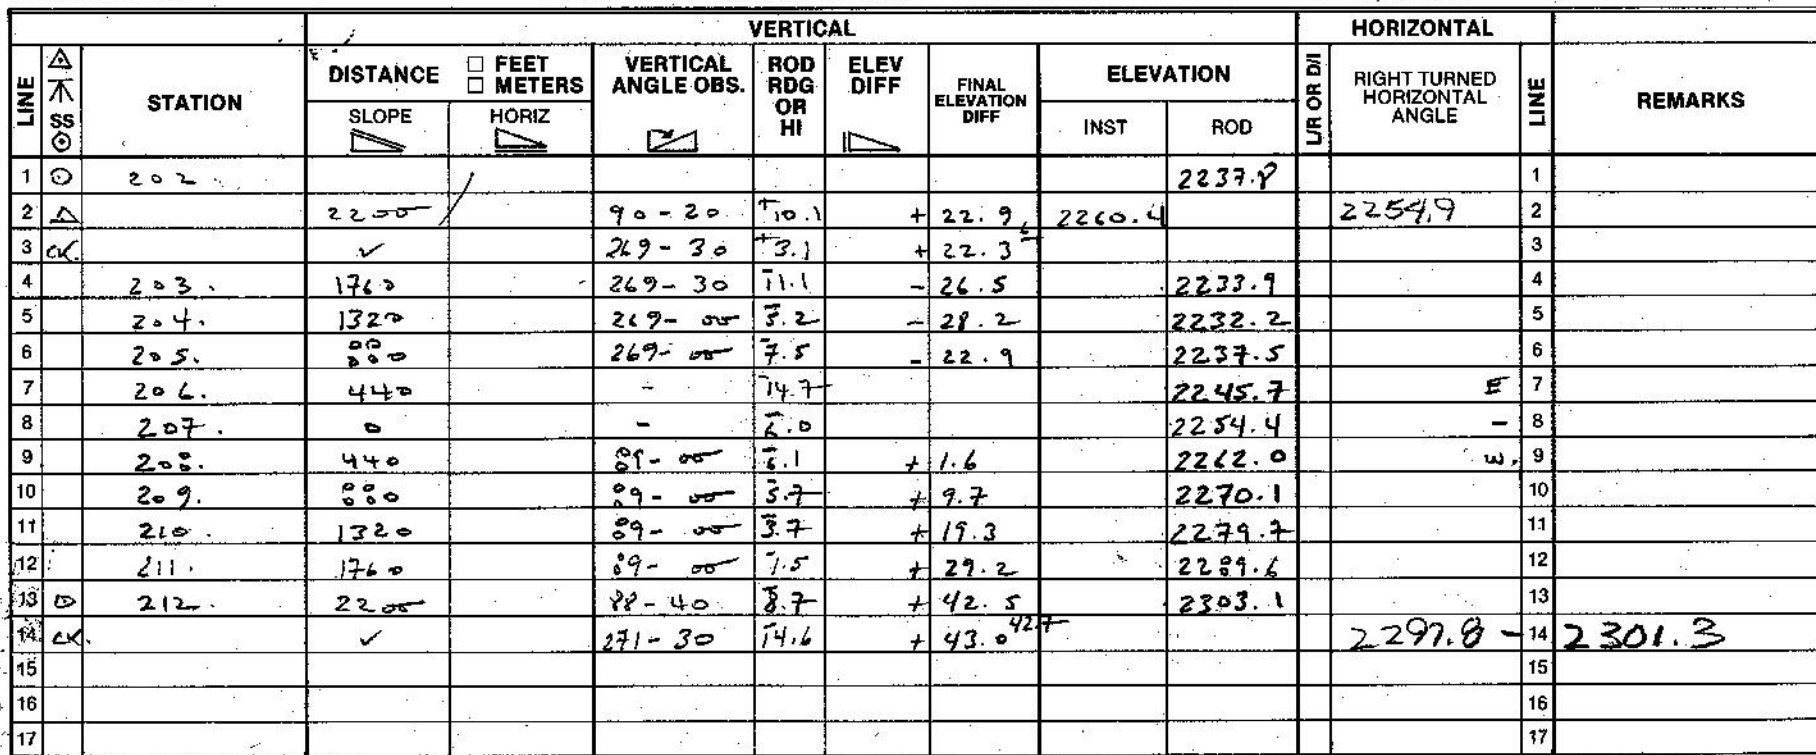 VERTICAL HORIZONTAL
LINE SS STATION DISTANCE □ FEET □ METERS SLOPE HORIZ VERTICAL ANGLE OBS. ROD RDG OR HI ELEV DIFF FINAL ELEVATION DIFF ELEVATION INST ROD L/R OR D/I RIGHT TURNED HORIZONTAL ANGLE LINE REMARKS
1 202 2237.8 1
2 2200 90-20 +10.1 + 22.9 2260.4 2254.9 2
3 CK. ✓ 269-30 +3.1 + 22.3 3
4 203. 1760 269-30 -11.1 - 26.5 2233.9 4
5 204. 1320 269-00 -5.2 - 28.2 2232.2 5
6 205. 880 269-00 -7.5 - 22.9 2237.5 6
7 206. 440 - -14.7 2245.7 E 7
8 207. 0 - -6.0 2254.4 - 8
9 208. 440 89-00 -6.1 + 1.6 2262.0 W. 9
10 209. 880 89-00 -5.7 + 9.7 2270.1 10
11 210. 1320 89-00 -3.7 + 19.3 2279.7 11
12 211. 1760 89-00 -1.5 + 29.2 2289.6 12
13 212. 2200 88-40 -8.7 + 42.5 2303.1 13
14 CK. ✓ 271-30 -14.6 + 43.0 42.7 2297.8 - 14 2301.3
15 15
16 16
17 17